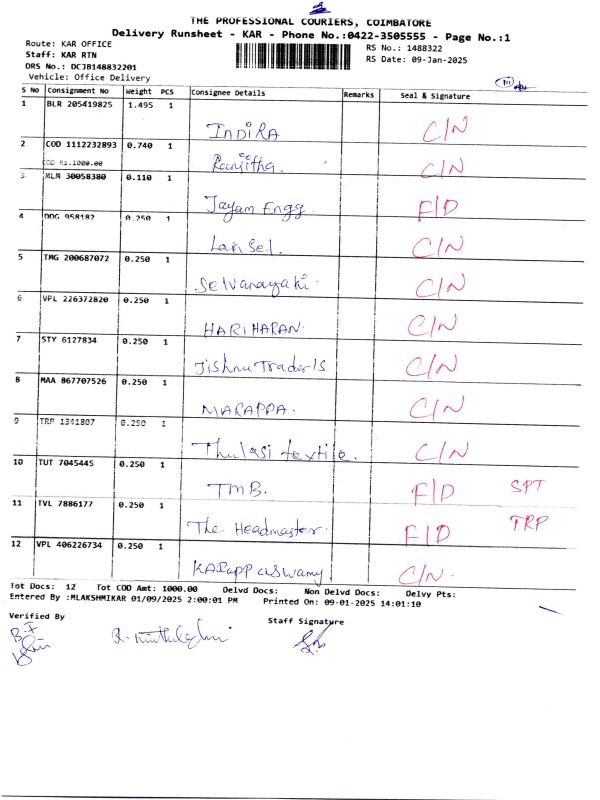 THE PROFESSIONAL COURIERS, COIMBATORE
Delivery Runsheet - KAR - Phone No.:0422-3505555 - Page No.:1
Route: KAR OFFICE
RS No.: 1488322
Staff: KAR RTN
RS Date: 09-Jan-2025
DRS No.: DCJB148832201
Vehicle: Office Delivery
S No Consignment No Weight PCS Consignee Details Remarks Seal & Signature
1 BLR 205419825 1.495 1
INDIRA C/N
2 COD 1112232893 0.740 1
COD Rs.1000.00 Ranjitha. C/N
3 MLM 30058380 0.110 1
Jayam Engg. F/D
4 DDG 958182 0.250 1
Lak Sel. C/N
5 TMG 200687072 0.250 1
Selvanayaki. C/N
6 VPL 226372820 0.250 1
HARIHARAN. C/N
7 STY 6127834 0.250 1
Jishnu Traders C/N
8 MAA 867707526 0.250 1
MARAPPA. C/N
9 TRP 1341807 0.250 1
Thulasi textile. C/N
10 TUT 7045445 0.250 1
TMB. F/D SPT
11 TVL 7886177 0.250 1
The Headmaster. F/D TRP
12 VPL 406226734 0.250 1
KARappuswamy C/N.
Tot Docs: 12 Tot COD Amt: 1000.00 Delvd Docs: Non Delvd Docs: Delvy Pts:
Entered By :MLAKSHMIKAR 01/09/2025 2:00:01 PM Printed On: 09-01-2025 14:01:10
Verified By
Staff Signature